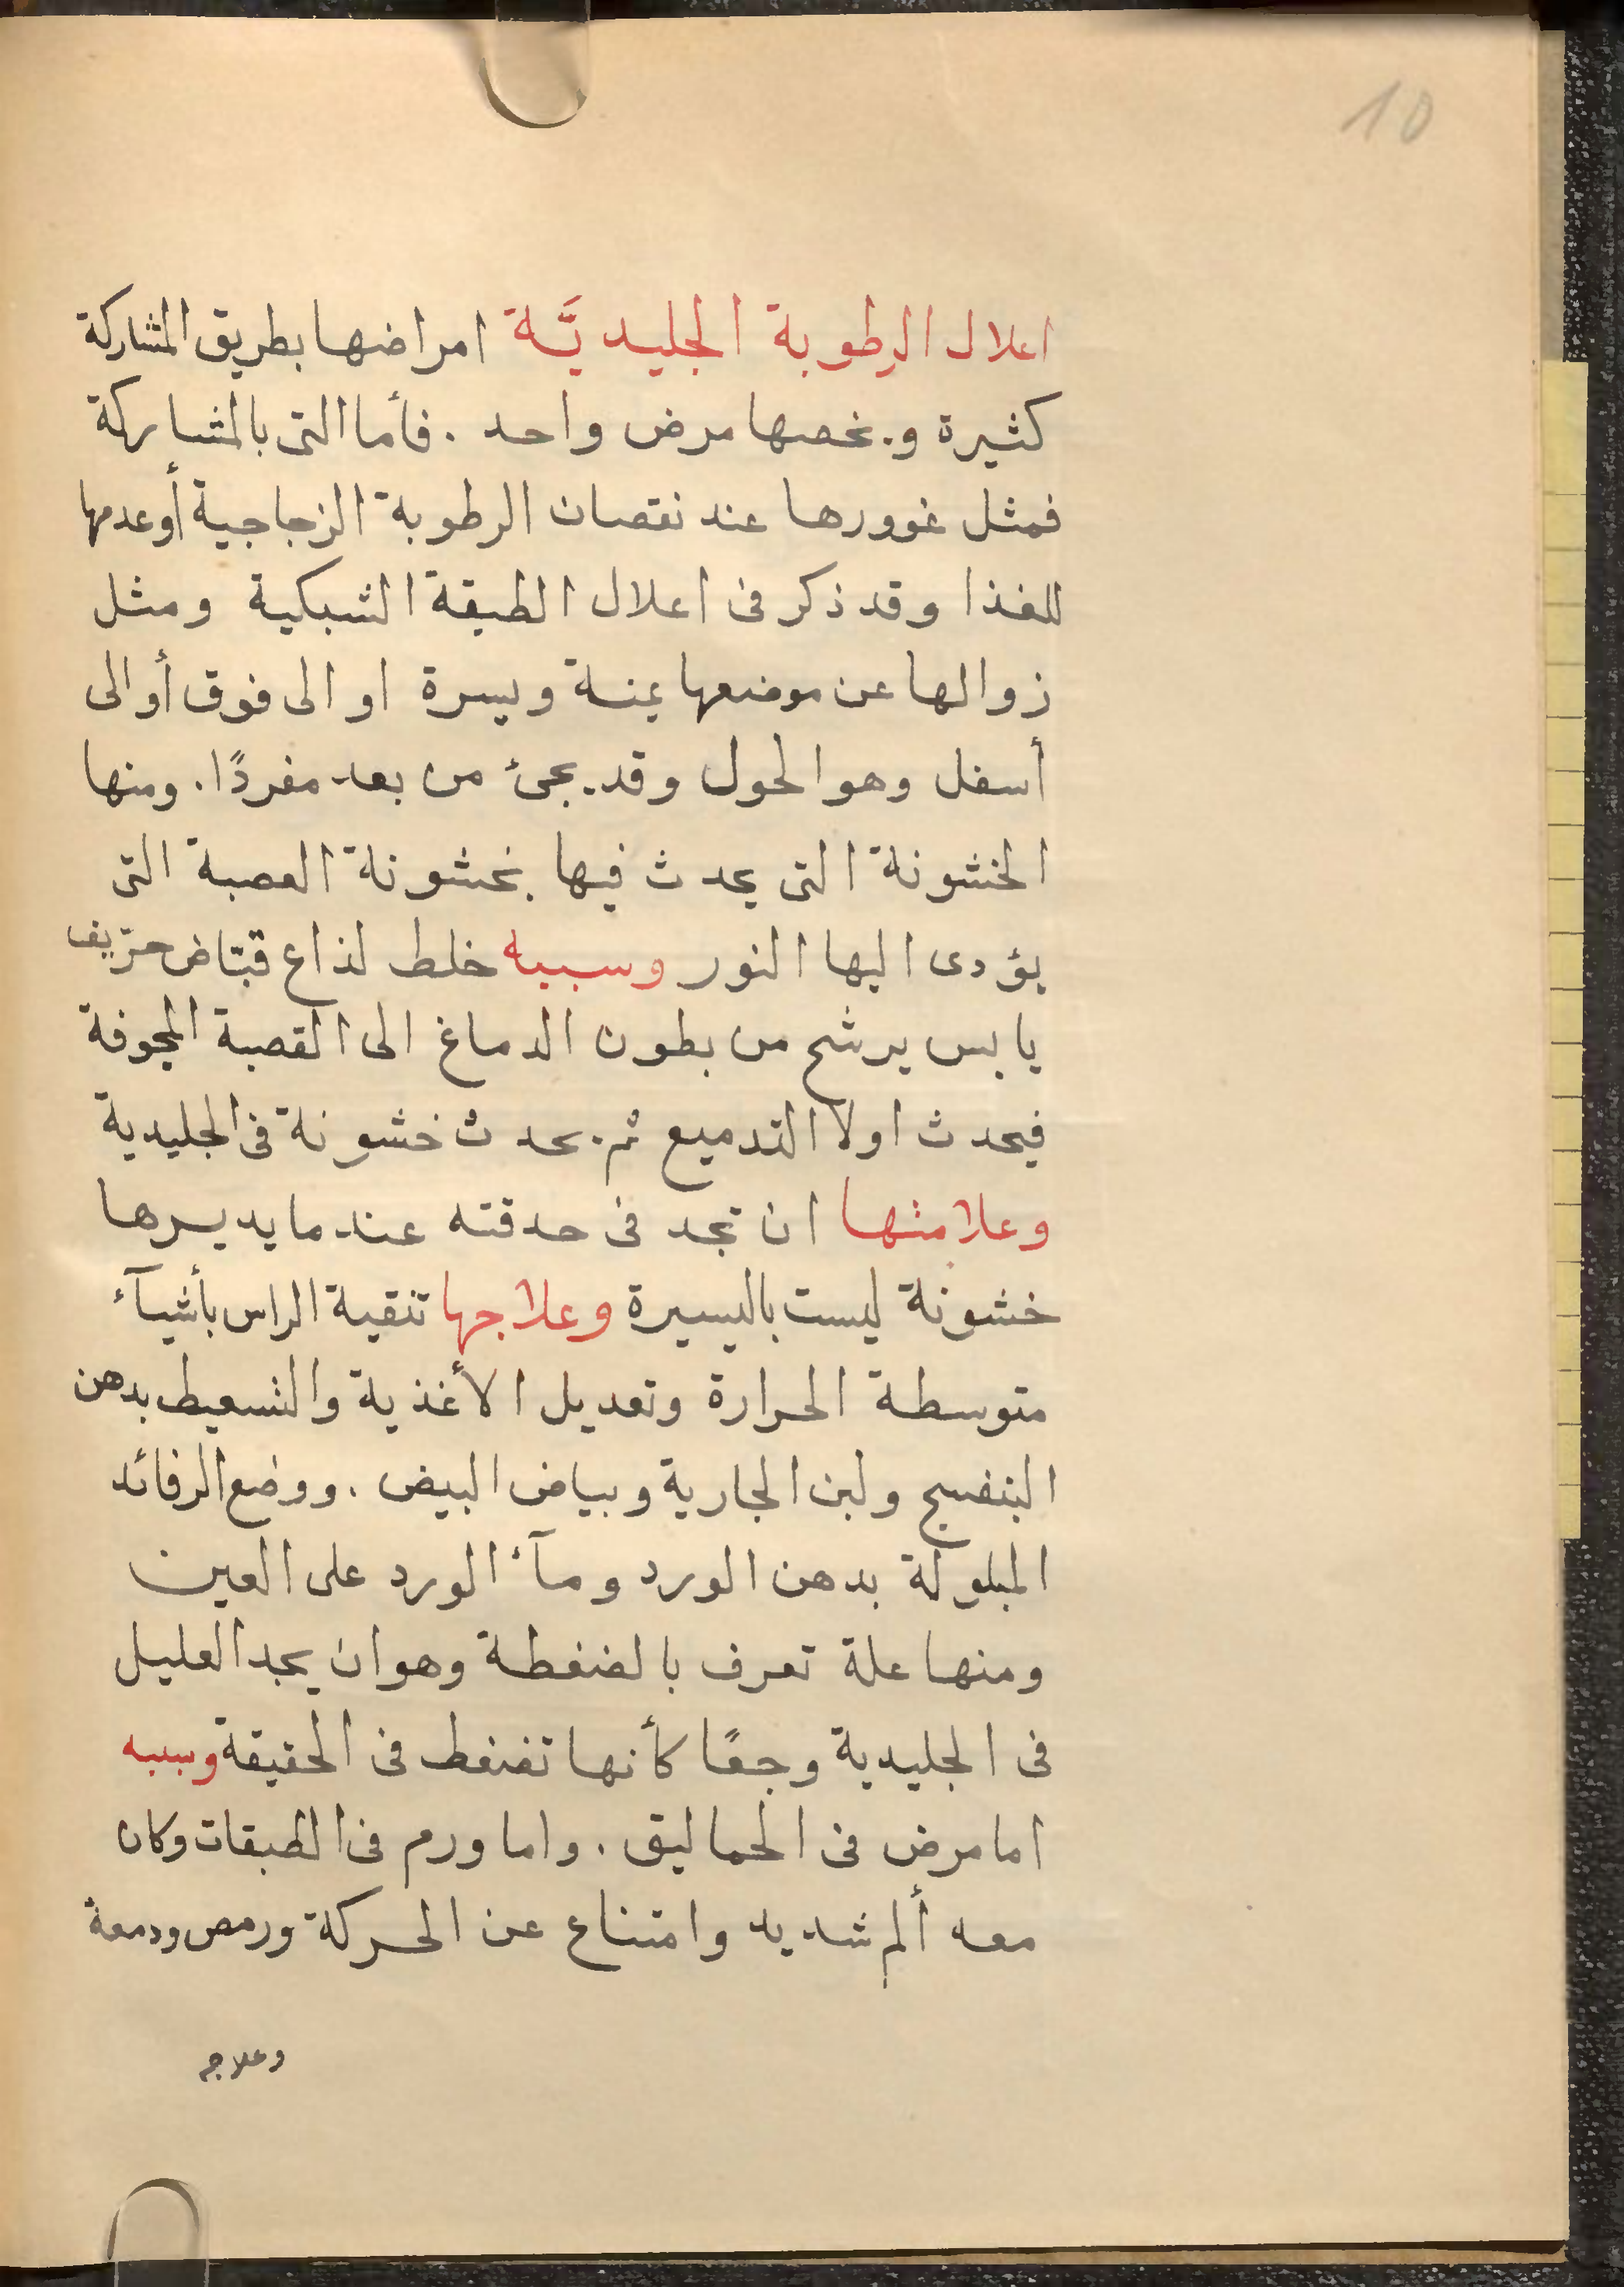 10
اعلال الرطوبة الجليديَّة امراضها بطريق المشاركة
كثيرة ويخصها مرض واحد . فأما التى بالمشاركة
فمثل غوورها عند نقصان الرطوبة الزجاجية أوعدمها
للغذا وقد ذكر فى اعلال الطبقة الشبكية ومثل
زوالها عن موضعها يمنة ويسرة او الى فوق أو الى
أسفل وهو الحول وقد يجئ من بعد مفردًا . ومنها
الخشونة التى يحدث فيها بخشونة العصبة التى
يؤدى اليها النور وسببه خلط لذاع قبّاض حرّيف
يابس يرشح من بطون الدماغ الى القصبة المجوفة
فيحدث اولا التدميع ثم يحدث خشونة فى الجليدية
وعلامتها ان تجد فى حدقته عندما يديرها
خشونة ليست باليسيرة وعلاجها تنقية الراس بأشيآء
متوسطة الحرارة وتعديل الأغذية والتسعيط بدهن
البنفسج ولبن الجارية وبياض البيض . ووضع الرفائد
المبلولة بدهن الورد ومآء الورد على العين
ومنها علة تعرف بالضغطة وهو ان يجد العليل
فى الجليدية وجعًا كأنها تضغط فى الحقيقة وسببه
اما مرض فى الحماليق . واما ورم فى الطبقات وكان
معه ألم شديد وامتناع عن الحركة ورمص ودمعة
وعلاجه